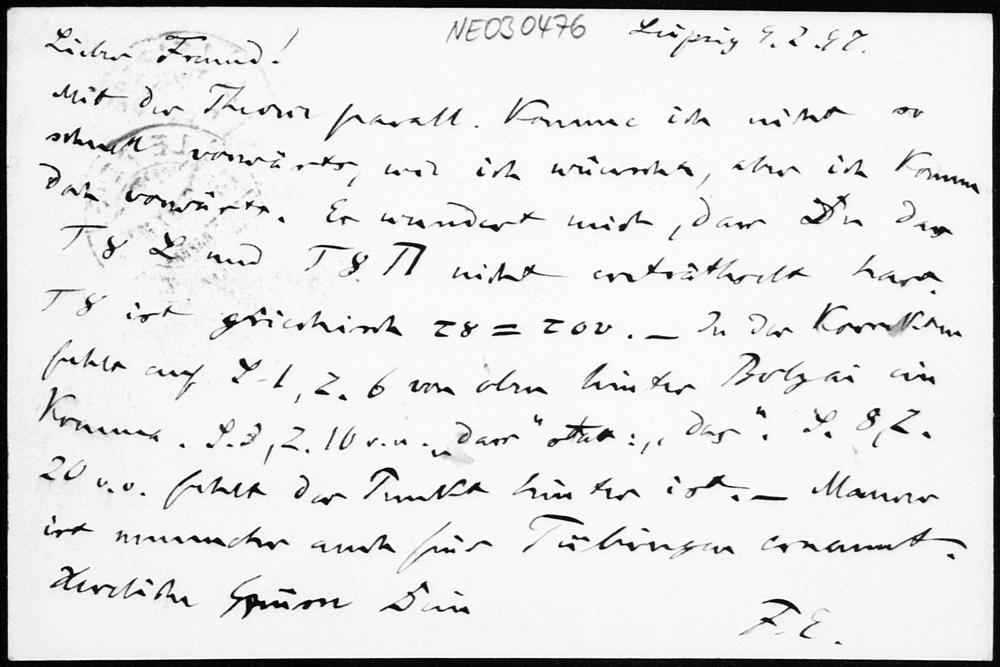 NE030476
Leipzig 9.2.97.
Lieber Freund!
Mit der Theorie parall. Komme ich nicht so
schnell vorwärts, wie ich wünsche, aber ich komme
doch vorwärts. Es wundert mich, dass Du das
T8 L und T8 Π nicht enträthselt hast.
T8 ist griechisch τ8 = του. — In der Korrektur
fehlt auf S. 1, Z. 6 von oben hinter Bolyai ein
Komma. S. 3, Z. 10 v. u. „dass“ statt: „das“. S. 8, Z.
20 v. o. fehlt der Punkt hinter ist. — Maurer
ist nunmehr auch für Tübingen ernannt.
Herzliche Grüsse Dein
F. E.